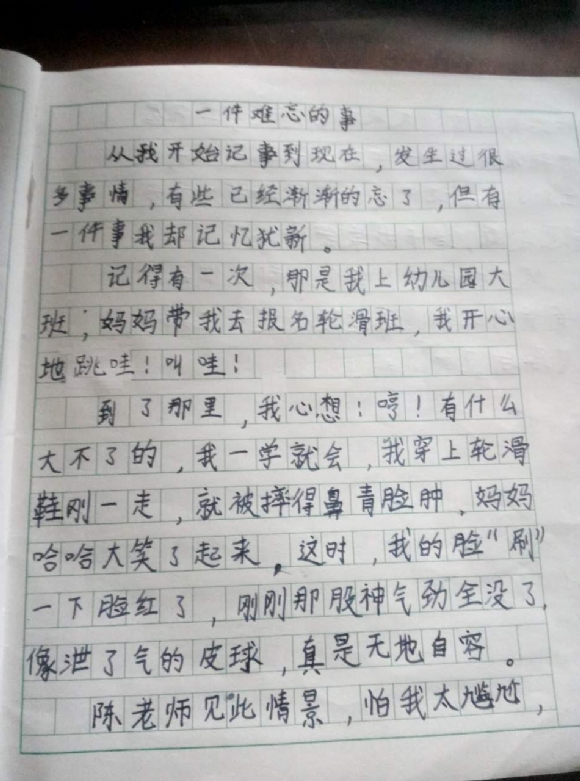 一件难忘的事
从我开始记事到现在，发生过很
多事情，有些已经渐渐的忘了，但有
一件事我却记忆犹新。
记得有一次，那是我上幼儿园大
班；妈妈带我去报名轮滑班，我开心
地跳哇！叫哇！
到了那里，我心想：哼！有什么
大不了的，我一学就会，我穿上轮滑
鞋刚一走，就被摔得鼻青脸肿，妈妈
哈哈大笑了起来。这时，我的脸“刷”
一下脸红了，刚刚那股神气劲全没了，
像泄了气的皮球，真是无地自容。
陈老师见此情景，怕我太尴尬，